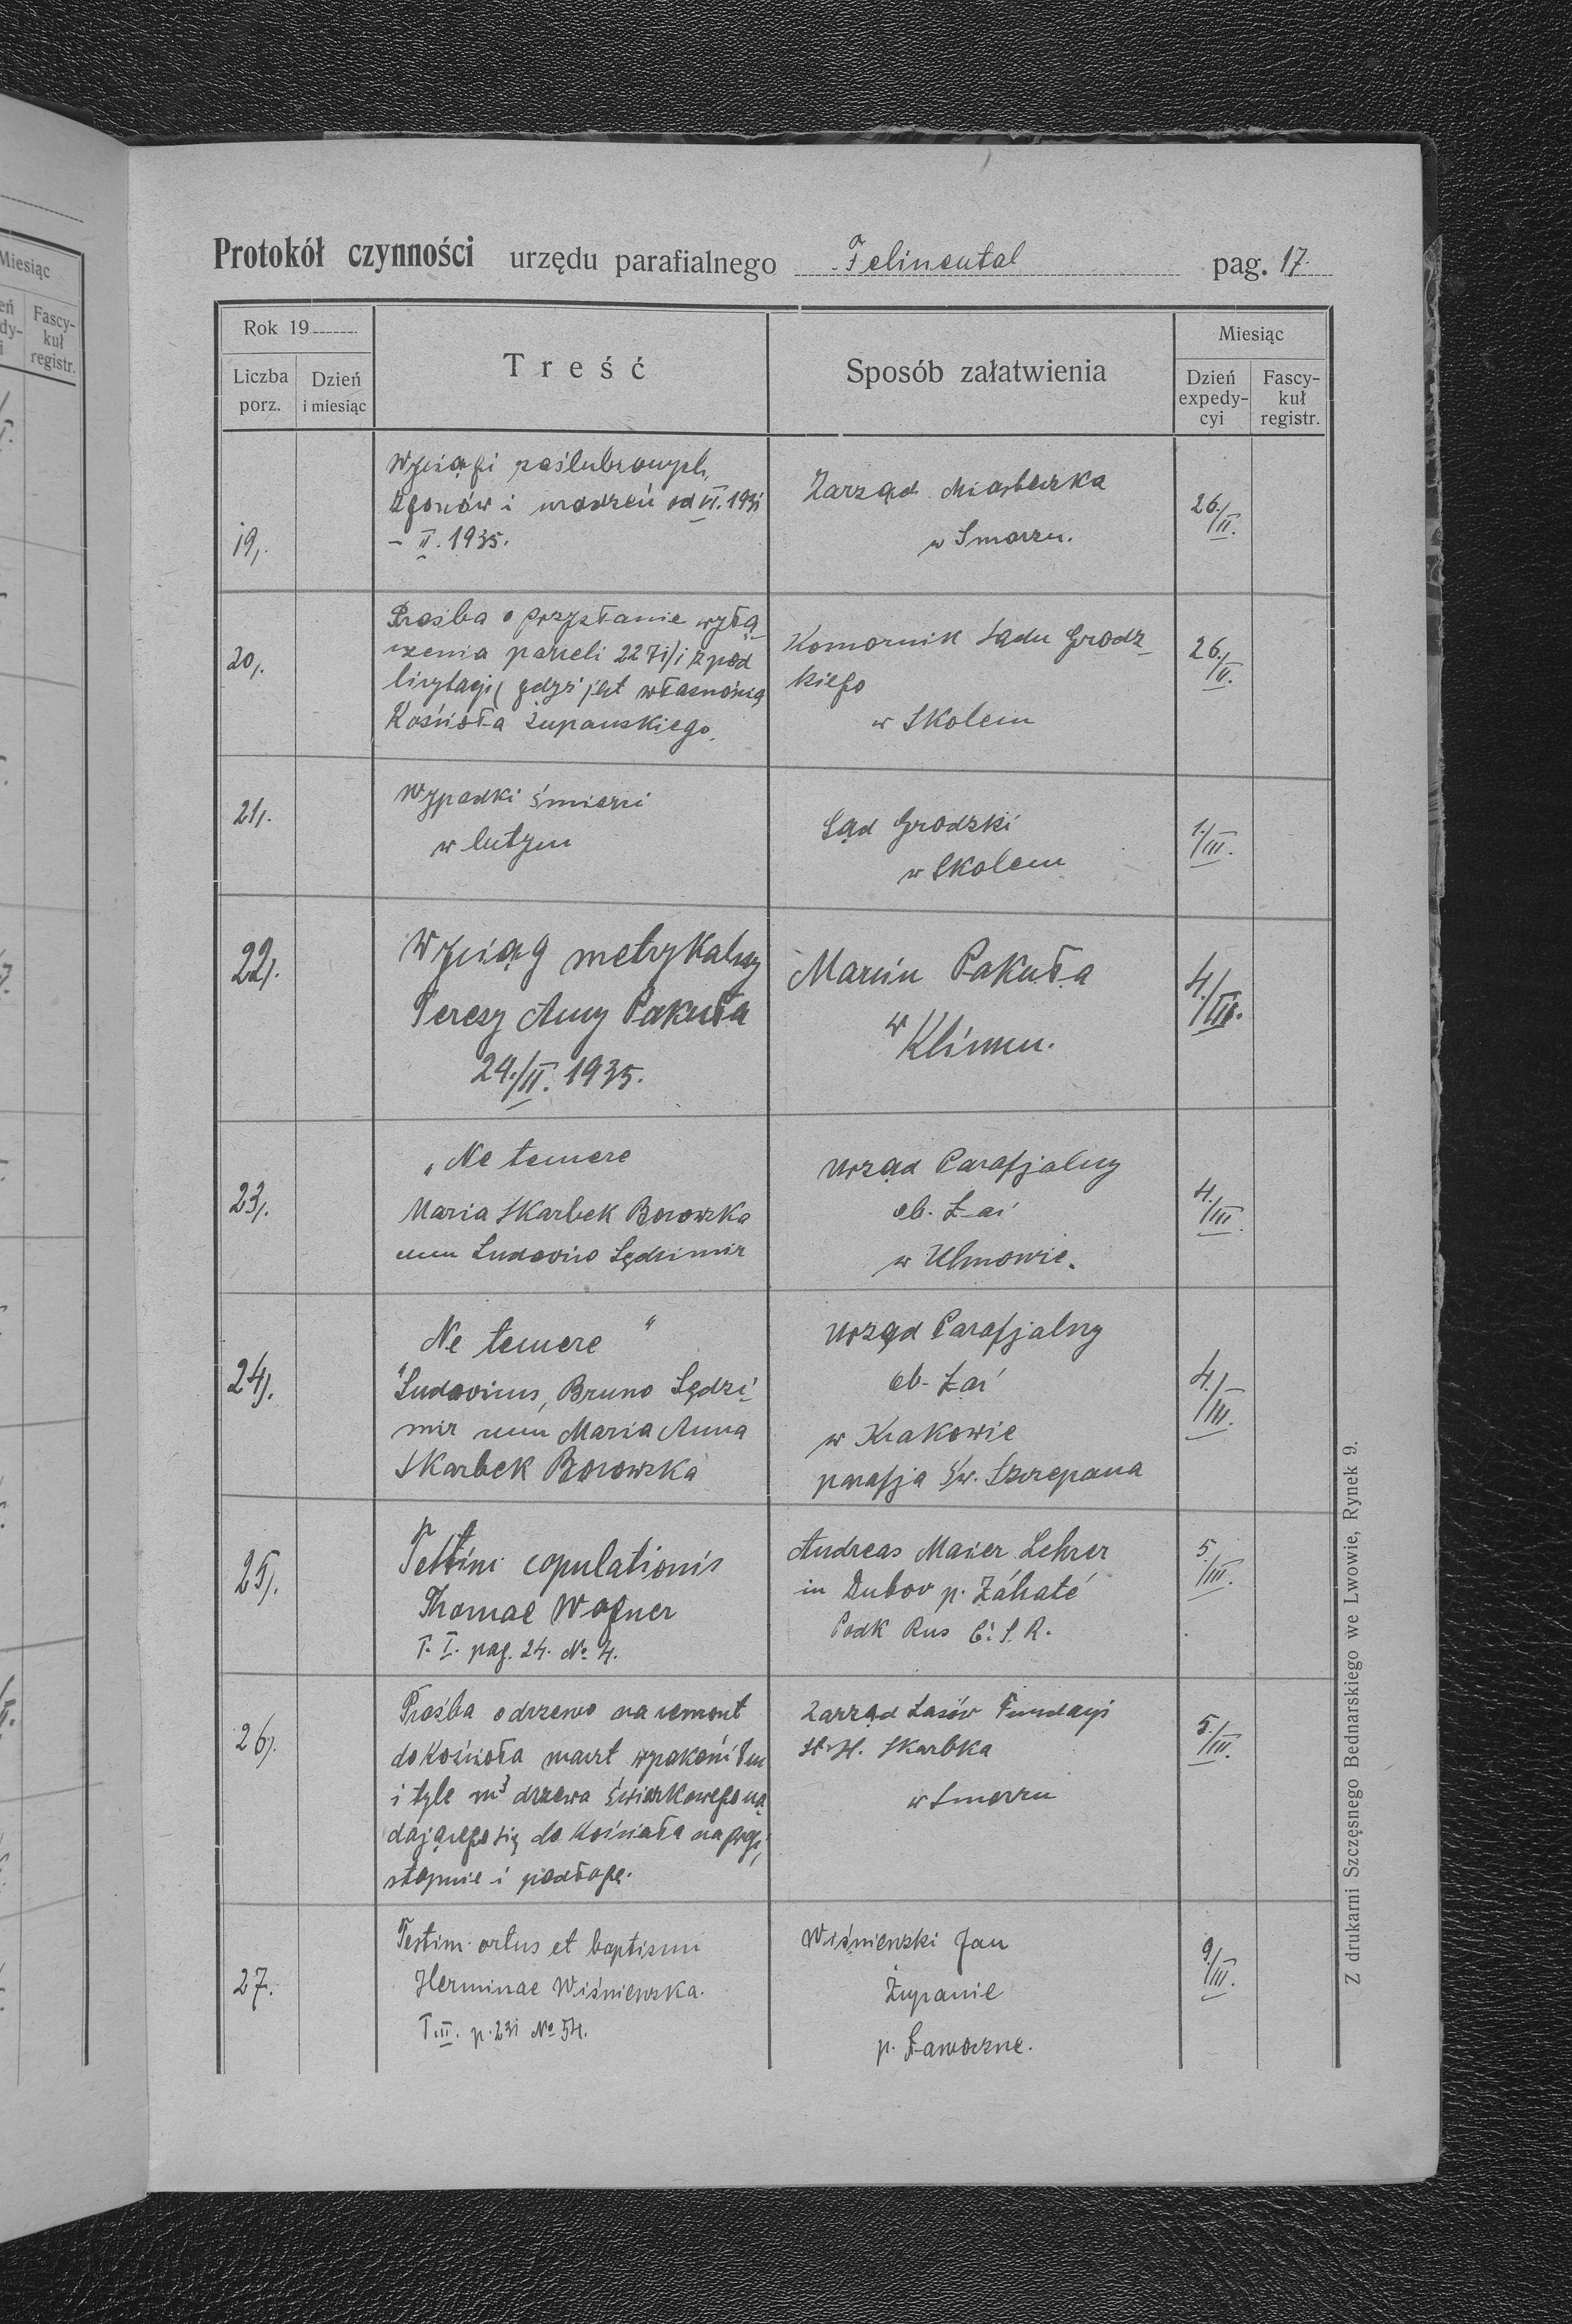 Protokół czynności urzędu parafialnego Felincutal pag. 17.
Rok 19
Liczba porz.
Dzień i miesiąc
Treść
Sposób załatwienia
Miesiąc
Dzień expedy-cyi
Fascy-kuł registr.
19,.
Wyciągi poślubionych,
zgonów i urodzeń od VI. 1931
– II. 1935.
Zarząd Miasteczka
w Smorzu.
26./II.
20,.
Prośba o przysłanie wyłą
czenia parceli 2271/1 z pod
licytacji, gdyż jest własnością
Kościoła Żupańskiego.
Komornik Sądu Grodz
kiego
w Skolem
26./II.
21,.
Wypadki śmierci
w lutym
Sąd Grodzki
w Skolem
1./III.
22,.
Wyciąg metrykalny
Teresy Anny Pakuła
24./II. 1935.
Marcin Pakuła
w Klimcu.
4./III.
23,.
„Ne temere
Maria Skarbek Borowska
cum Ludovico Sędzimir
Urząd Parafjalny
ob. Łac
w
4./III.
24,.
Ne temere "
"Ludovicus, Bruno Sędzi
mir cum Maria Anna
Skarbek Borowska
Urząd Parafjalny
ob. Łac
w Krakowie
parafja Św. Szczepana
4./III.
25,.
Testim. copulationis
Thomae Wagner
T. I. pag. 24. № 4.
Andreas Maier Lehrer
in Dubov p. Záhaté
Podk Rus Č. S. R.
5./III.
26,.
Prośba o drzewo na remont
do Kościoła
i tyle m³ drzewa świerkowego na
dającego się do Kościoła na
stopnie i podłogę.
Zarząd Lasów Fundacji
St. H. Skarbka
w Smorzu
5./III.
27.
Testim. ortus et baptismi
Herminae Wiśniewska.
T. III. p. 231 № 54.
Wiśniewski Jan
Żupanie
p. Ławoczne.
9./III.
Z drukarni Szczęsnego Bednarskiego we Lwowie, Rynek 9.
Miesiąc
Fascy-
kuł
registr.